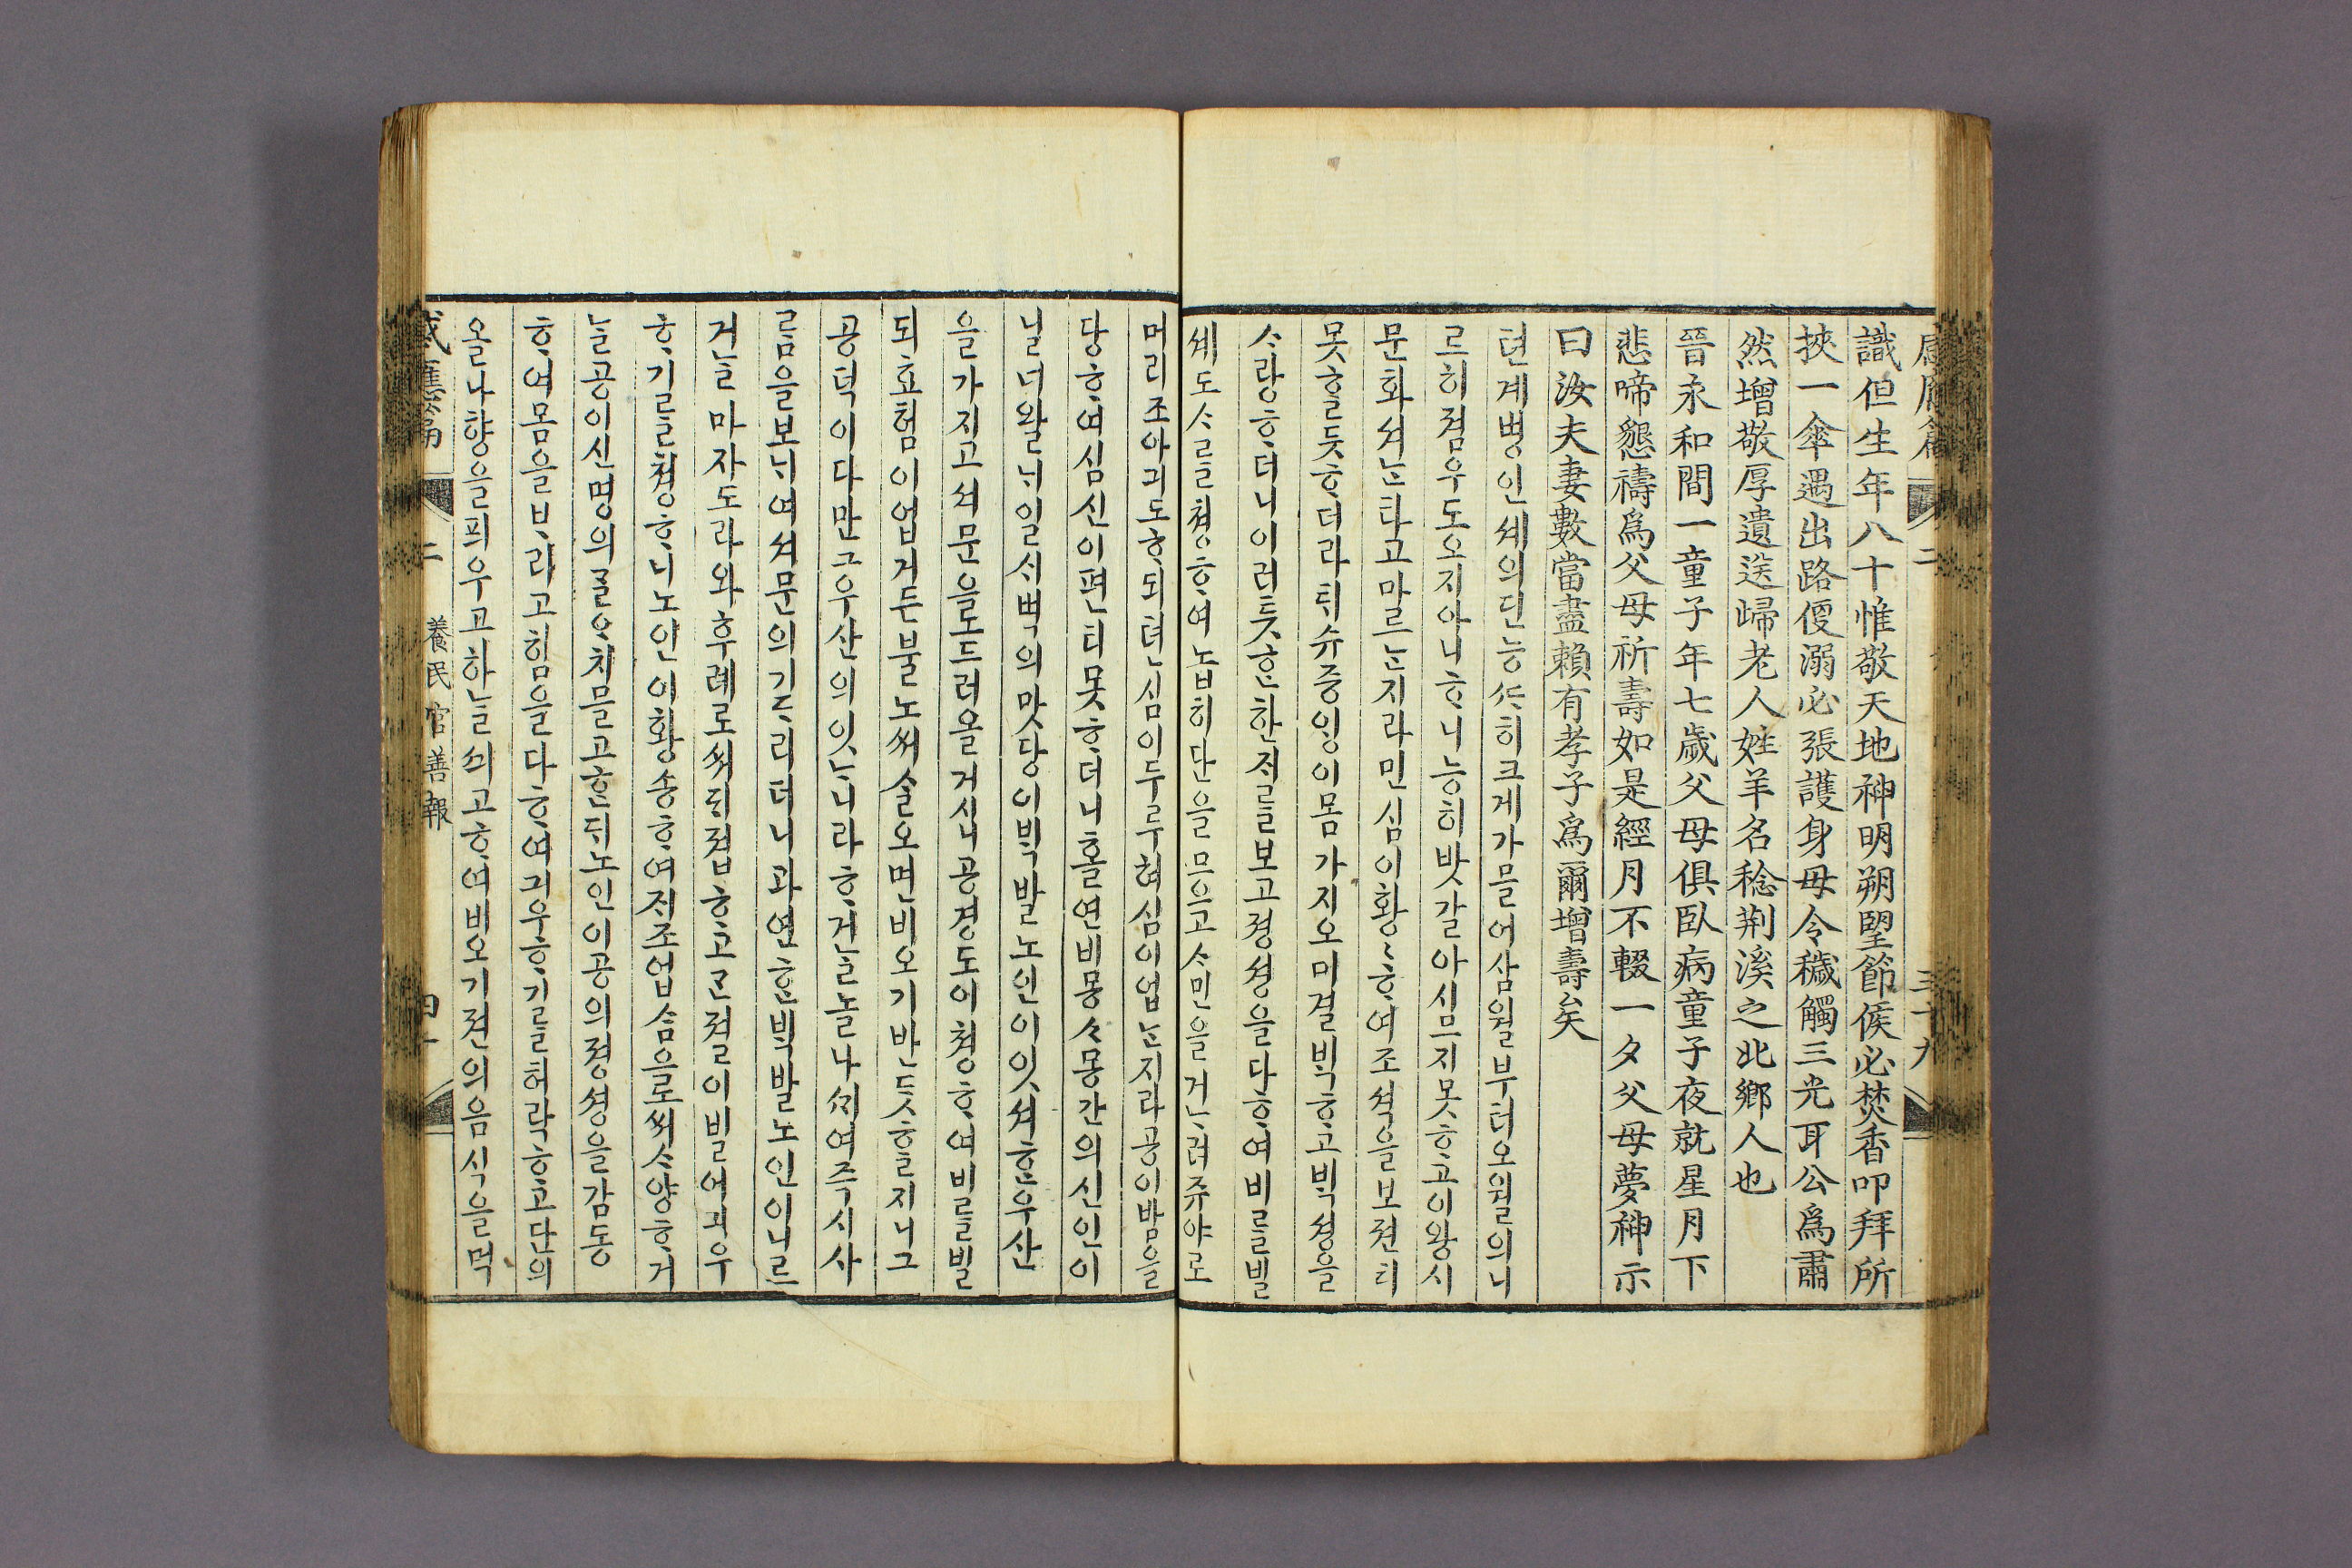 識但生年八十惟敬天地神明朔望節候必焚香叩拜所
挾一傘遇出路偃溺必張護身毋令穢觸三光耳公爲肅
然增敬厚遺送歸老人姓羊名稔荆溪之北鄉人也
晉永和間一童子年七歲父母俱臥病童子夜就星月下
悲啼懇禱爲父母祈壽如是經月不輟一夕父母夢神示
曰汝夫妻數當盡賴有孝子爲爾增壽矣
텬계병인셰의딘능ᄯᅡ히크게가믈어삼월부터오월의니
르히졈우도오지아니ᄒᆞ니능히밧갈아시므지못ᄒᆞ고이왕시
문화셔ᄂᆞᆫ타고마르ᄂᆞᆫ지라민심이황〻ᄒᆞ여조셕을보젼티
못ᄒᆞᆯ듯ᄒᆞ더라틱슈즁잉이몸가지오미결ᄇᆡᆨᄒᆞ고ᄇᆡᆨ셩을
ᄉᆞ랑ᄒᆞ더니이러틋ᄒᆞᆫ한ᄌᆡᄅᆞᆯ보고졍셩을다ᄒᆞ여비ᄅᆞᆯ빌
셰도ᄉᆞᄅᆞᆯ쳥ᄒᆞ여놉히단을므으고ᄉᆞ민을거ᄂᆞ려쥬야로
머리조아괴도ᄒᆞ되텬심이두루혀심이업ᄂᆞᆫ지라공이밤을
당ᄒᆞ여심신이편티못ᄒᆞ더니홀연비몽ᄉᆞ몽간의신인이
닐너왈ᄂᆡ일ᄉᆡ벽의맛당이ᄇᆡᆨ발노인이이셔ᄒᆞᆫ우산
을가지고셔문을도드러올거시니공경도이쳥ᄒᆞ여비ᄅᆞᆯ빌
되효험이업거든불노ᄡᅥ술오면비오기반듯ᄒᆞᆯ지니그
공덕이다만그우산의잇ᄂᆞ니라ᄒᆞ거ᄂᆞᆯ놀나ᄭᆡ여쥬시사
ᄅᆞᆷ을보ᄂᆡ여셔문의기ᄃᆞ리더니과연ᄒᆞᆫᄇᆡᆨ발노인이니르
거ᄂᆞᆯ마자도라와후례로ᄡᅥᄃᆡ졉ᄒᆞ고ᄀᆞᆫ졀이빌어괴우
ᄒᆞ기ᄅᆞᆯ쳥ᄒᆞ니노인이황송ᄒᆞ여ᄌᆡ조업ᄉᆞᆷ을로ᄡᅥᄉᆞ양ᄒᆞ거
ᄂᆞᆯ공이신명의ᄀᆞᄅᆞ치믈고ᄒᆞᆫᄃᆡ노인이공의졍셩을감동
ᄒᆞ여몸을ᄇᆞ리고힘을다ᄒᆞ여괴우ᄒᆞ기ᄅᆞᆯ허락ᄒᆞ고단의
올나향을픠우고하ᄂᆞᆯᄭᅴ고ᄒᆞ여비오기젼의음식을먹
感應篇 二 養民官善報